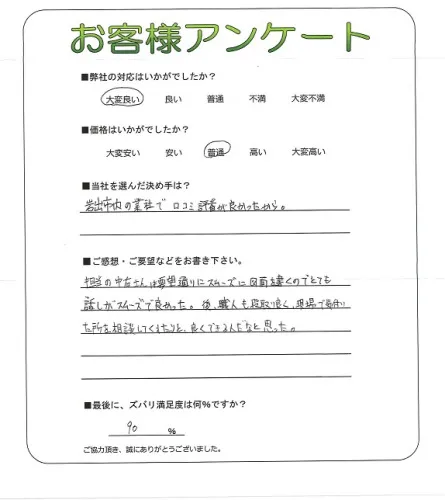 お客様アンケート
■弊社の対応はいかがでしたか？
大変良い 良い 普通 不満 大変不満
■価格はいかがでしたか？
大変安い 安い 普通 高い 大変高い
■当社を選んだ決め手は？
岩出市内の業社で 口コミ評価が良かったから。
■ご感想・ご要望などをお書き下さい。
担当の中さんは要望通りにスムーズに図面を書くのでとても
話しがスムーズで良かった。後、職人も段取り良く、現場で
た所を相談してくれたりと、良くできるんだなと思った。
■最後に、ズバリ満足度は何%ですか？
90 %
ご協力頂き、誠にありがとうございました。